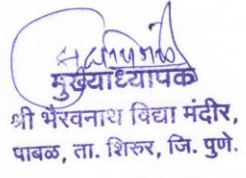 मुख्याध्यापक
श्री भैरवनाथ विद्या मंदीर,
पाबळ, ता. शिरुर, जि. पुणे.